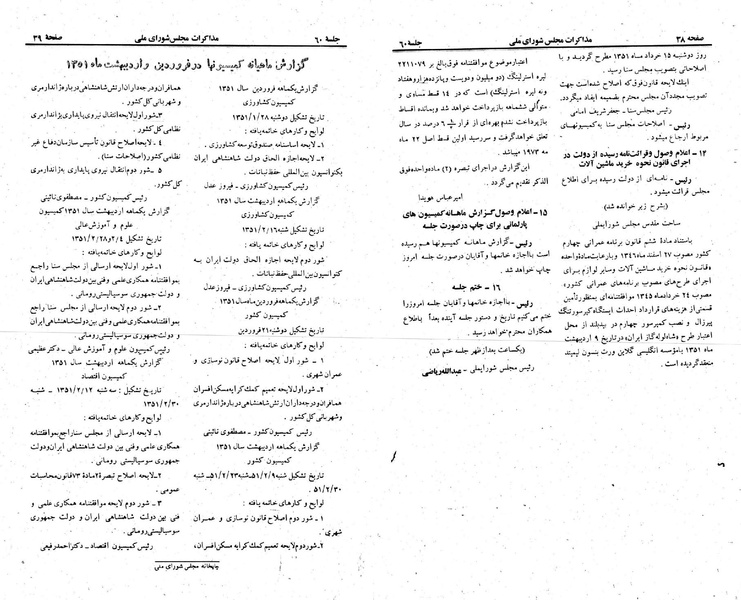 صفحه ۳۸
مذاکرات مجلس شورای ملی
جلسه ۶۰
روز دوشنبه ۱۵ خرداد ماه ۱۳۵۱ مطرح گردید و با
اصلاحاتی بتصویب مجلس سنا رسید .
اینک لایحه قانون فوق که اصلاح شده است جهت
تصویب مجدد آن مجلس محترم بضمیمه ایفاد میگردد.
رئیس مجلس سنا - جعفر شریف امامی
رئیس - اصلاحات مجلس سنا به کمیسیونهای
مربوط ارجاع میشود .
۱۴ - اعلام وصول و قرائت نامه رسیده از دولت در
اجرای قانون نحوه خرید ماشین آلات
رئیس - نامه‌ای از دولت رسیده برای اطلاع
مجلس قرائت میشود .
(بشرح زیر خوانده شد)
ساحت مقدس مجلس شورایملی
باستناد مادهٔ ششم قانون برنامه عمرانی چهارم
مصوب ۲۷ اسفند ماه ۱۳۴۶ و با رعایت مادهٔ واحده
«قانون نحوه خرید ماشین آلات وسایر لوازم برای
اجرای طرحهای مصوب برنامه های عمرانی کشور»
مصوب ۲۴ خرداد ماه ۱۳۴۵ موافقتنامه ای بمنظور تأمین
قسمتی از هزینه‌های قرارداد احداث ایستگاه کمپرسور تنگ
پیرزال و نصب کمپرسور چهارم در بیدبلند از محل
اعتبار طرح «شاه لوله گاز ایران» در تاریخ ۹ اردیبهشت
ماه ۱۳۵۱ با مؤسسه انگلیسی گلاین ورت بنسون لیمیتد
منعقد گردیده است .
اعتبار موضوع موافقتنامه فوق بالغ بر ۲۲۱۱۰۷۹
لیره استرلینگ (دو میلیون و دویست و یازده هزار و هفتاد
و نه لیره استرلینگ) است که در ۱۴ قسط مساوی و
متوالی ششماهه بازپرداخت خواهد شد و بمانده اقساط
بازپرداخت نشده بهره‌ای از قرار ۶ درصد در سال
تعلق خواهد گرفت و سررسید اولین قسط اصل ۲۲ ماه
مه ۱۹۷۳ میباشد .
این گزارش در اجرای تبصره (۲) ماده واحده فوق
الذکر تقدیم می گردد .
امیرعباس هویدا
۱۵ - اعلام وصول گزارش ماهانه کمیسیون های
پارلمانی برای چاپ در صورت جلسه
رئیس - گزارش ماهانه کمیسیونها هم رسیده
است با اجازه خانمها و آقایان در صورت جلسه امروز
چاپ خواهد شد .
۱۶ - ختم جلسه
رئیس - با اجازه خانمها و آقایان جلسه امروز را
ختم می کنیم تاریخ و دستور جلسه آینده بعداً باطلاع
همکاران محترم خواهد رسید .
(یکساعت بعد از ظهر جلسه ختم شد)
رئیس مجلس شورایملی - عبدالله ریاضی
جلسه ۶۰
مذاکرات مجلس شورای ملی
صفحه ۳۹
گزارش ماهیانه کمیسیونها در فروردین و اردیبهشت ماه ۱۳۵۱
گزارش یکماهه فروردین سال ۱۳۵۱
کمیسیون کشاورزی
تاریخ تشکیل دوشنبه ۱۳۵۱/۱/۲۸
لوایح و کارهای خاتمه یافته :
۱- لایحه اساسنامه صندوق توسعه کشاورزی .
۲- لایحه اجازه الحاق دولت شاهنشاهی ایران
بکنوانسیون بین‌المللی حفظ نباتات .
رئیس کمیسیون کشاورزی - فیروز عدل
گزارش یکماهه اردیبهشت سال ۱۳۵۱
کمیسیون کشاورزی
تاریخ تشکیل ۱۳۵۱/۲/۱۶
لوایح و کارهای خاتمه یافته :
شور دوم لایحه اجازه الحاق دولت ایران به
کنوانسیون بین‌المللی حفظ نباتات .
رئیس کمیسیون کشاورزی - فیروز عدل
گزارش یکماهه فروردین ماه سال ۱۳۵۱
کمیسیون کشور
تاریخ تشکیل دوشنبه ۲۱ فروردین
لوایح و کارهای خاتمه یافته :
۱ - شور اول لایحه اصلاح قانون نوسازی و
عمران شهری .
۲- شور اول لایحه تعمیم کمک کرایه مسکن افسران
و همافران و درجه داران ارتش شاهنشاهی درباره ژاندارمری
و شهربانی کل کشور .
رئیس کمیسیون کشور - مصطفوی نائینی
گزارش یکماهه اردیبهشت سال ۱۳۵۱
کمیسیون کشور
تاریخ تشکیل شنبه ۵۱/۲/۹-شنبه ۵۱/۲/۲۳- شنبه
۵۱/۲/۳۰ .
لوایح و کارهای خاتمه یافته :
۱ - شور دوم لایحه اصلاح قانون نوسازی و عمران
شهری .
۲- شور دوم لایحه تعمیم کمک کرایه مسکن افسران،
همافران و درجه داران ارتش شاهنشاهی درباره ژاندارمری
و شهربانی کل کشور .
۳- شور اول لایحه انتقال نیروی پایداری به ژاندارمری
نظامی کل کشور .
۴ - لایحه اصلاح قانون تأسیس سازمان دفاع غیر
نظامی کشور (اصلاحات سنا) .
۵ - شور دوم لایحه انتقال نیروی پایداری به ژاندارمری
کل کشور .
رئیس کمیسیون کشور - مصطفوی نائینی
گزارش یکماهه اردیبهشت سال ۱۳۵۱ کمیسیون
علوم و آموزش عالی
تاریخ تشکیل ۲/۴ و ۱۳۵۱/۲/۲۸
لوایح و کارهای خاتمه یافته :
۱- شور اول لایحه ارسالی از مجلس سنا راجع
بموافقتنامه همکاری علمی و فنی بین دولت شاهنشاهی ایران
و دولت جمهوری سوسیالیستی رومانی .
۲- شور دوم لایحه ارسالی از مجلس سنا راجع
بموافقتنامه همکاری علمی و فنی بین دولت شاهنشاهی ایران
و دولت جمهوری سوسیالیستی رومانی .
رئیس کمیسیون علوم و آموزش عالی - دکتر عظیمی
گزارش یکماهه اردیبهشت سال ۱۳۵۱
کمیسیون اقتصاد
تاریخ تشکیل : سه شنبه ۱۳۵۱/۲/۱۲ - شنبه
۱۳۵۱/۲/۳۰
لوایح و کارهای خاتمه یافته :
۱- لایحه ارسالی از مجلس سنا راجع بموافقتنامه
همکاری علمی وفنی بین دولت شاهنشاهی ایران و دولت
جمهوری سوسیالیستی رومانی .
۲- لایحه اصلاح تبصرهٔ ۲ مادهٔ ۷۳ قانون محاسبات
عمومی .
۳ - شور دوم لایحه موافقتنامه همکاری علمی و
فنی بین دولت شاهنشاهی ایران و دولت جمهوری
سوسیالیستی رومانی .
رئیس کمیسیون اقتصاد - دکتر احمد رفیعی
چاپخانه مجلس شورای ملی